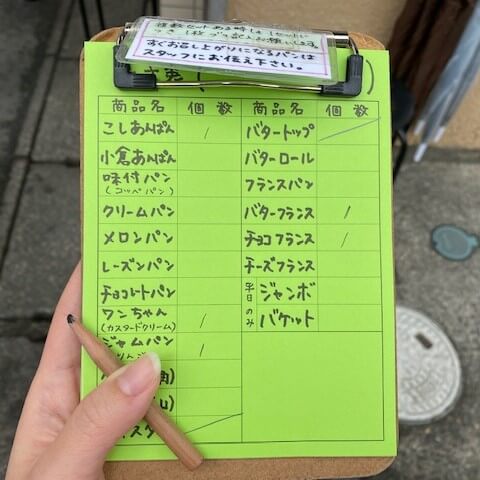 複数セットある時は1セットに
つき1枚づつ記入お願いします。
すぐお召し上がりになるパンは
スタッフにお伝え下さい。
商品名 個数 商品名 個数
こしあんぱん / バタートップ
小倉あんぱん バターロール
味付パン フランスパン
(コッペパン)
クリームパン バターフランス /
メロンパン チョコフランス /
レーズンパン チーズフランス
チョコレートパン 平日のみ ジャンボ
ワンちゃん / バケット
(カスタードクリーム)
ジャムパン /